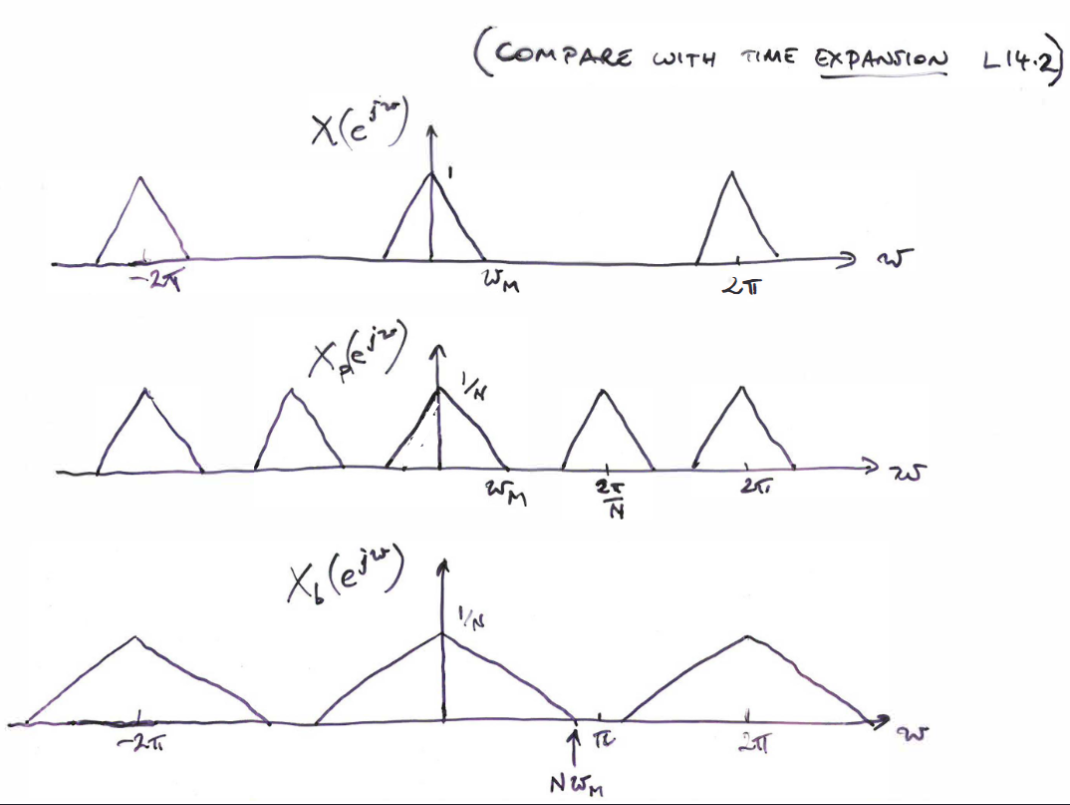 (COMPARE WITH TIME EXPANSION L14.2)
X(e^{jω})
1
-2π ω_M 2π ω
X_p(e^{jω})
1/N
ω_M 2π/N 2π ω
X_b(e^{jω})
1/N
-2π π 2π ω
Nω_M